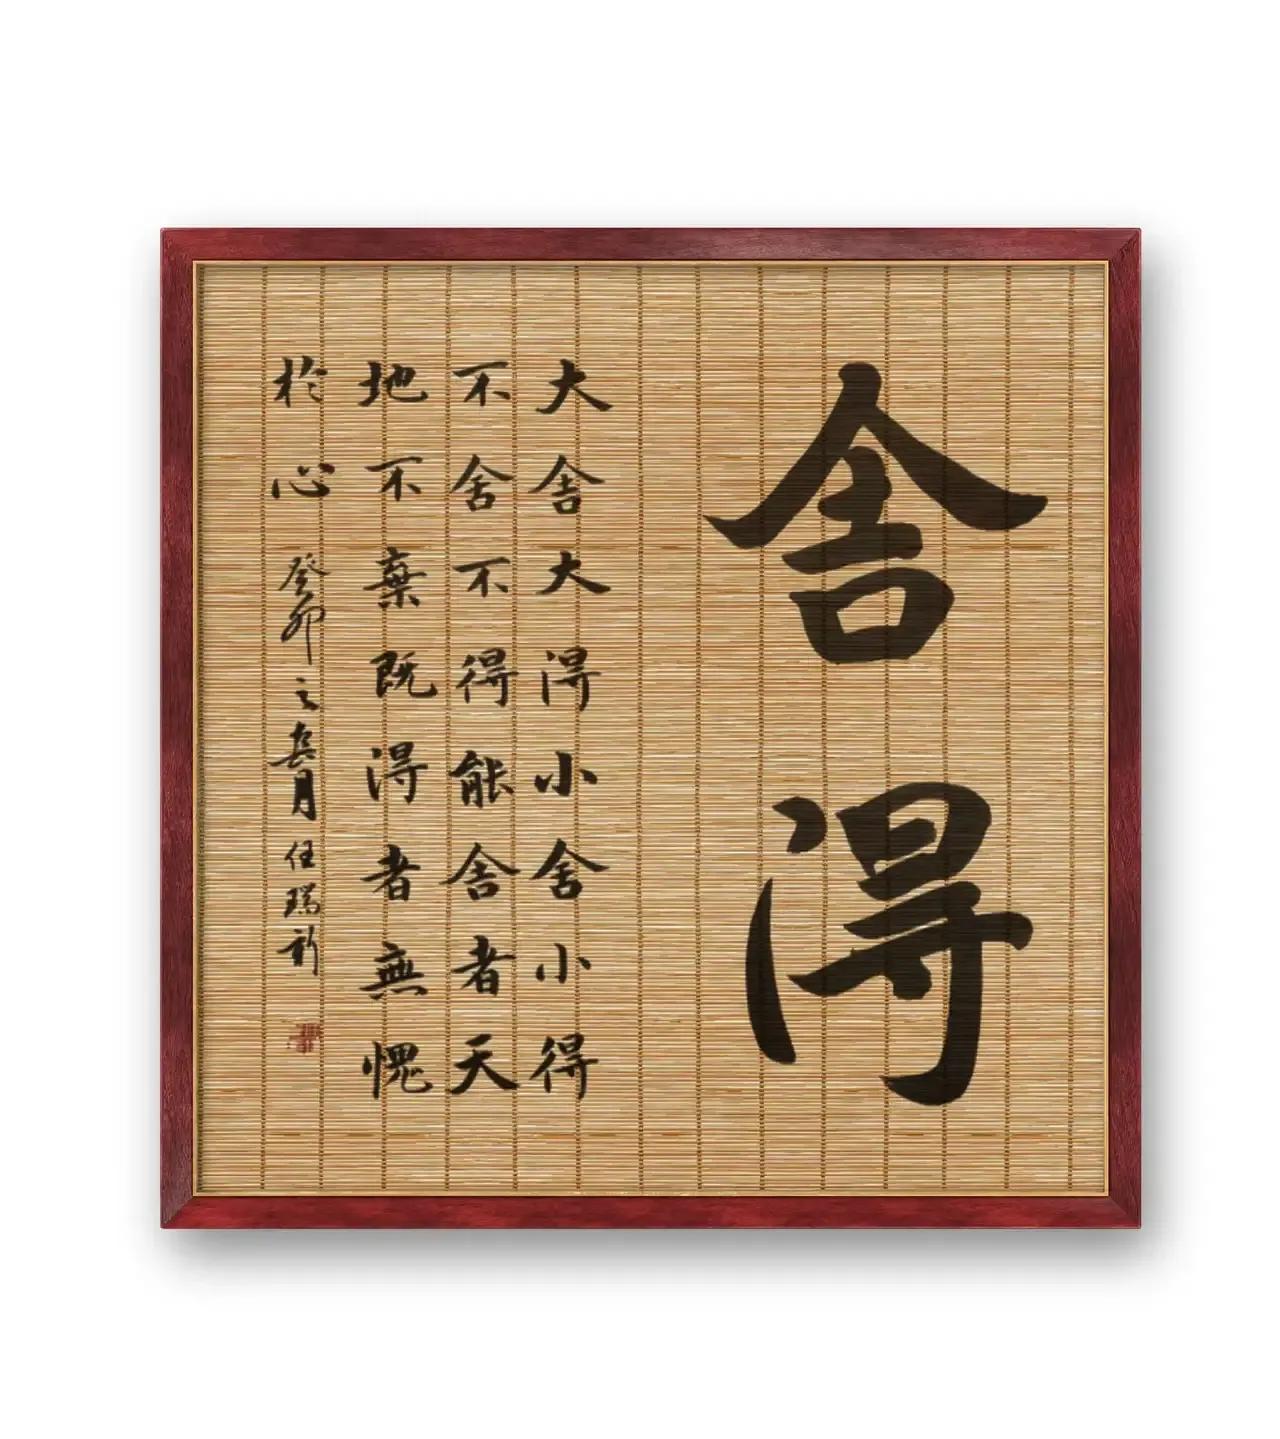 舍得
大舍大得小舍小得
不舍不得能舍者天
地不棄既得者無愧
於心 癸卯之春月 任瑞新